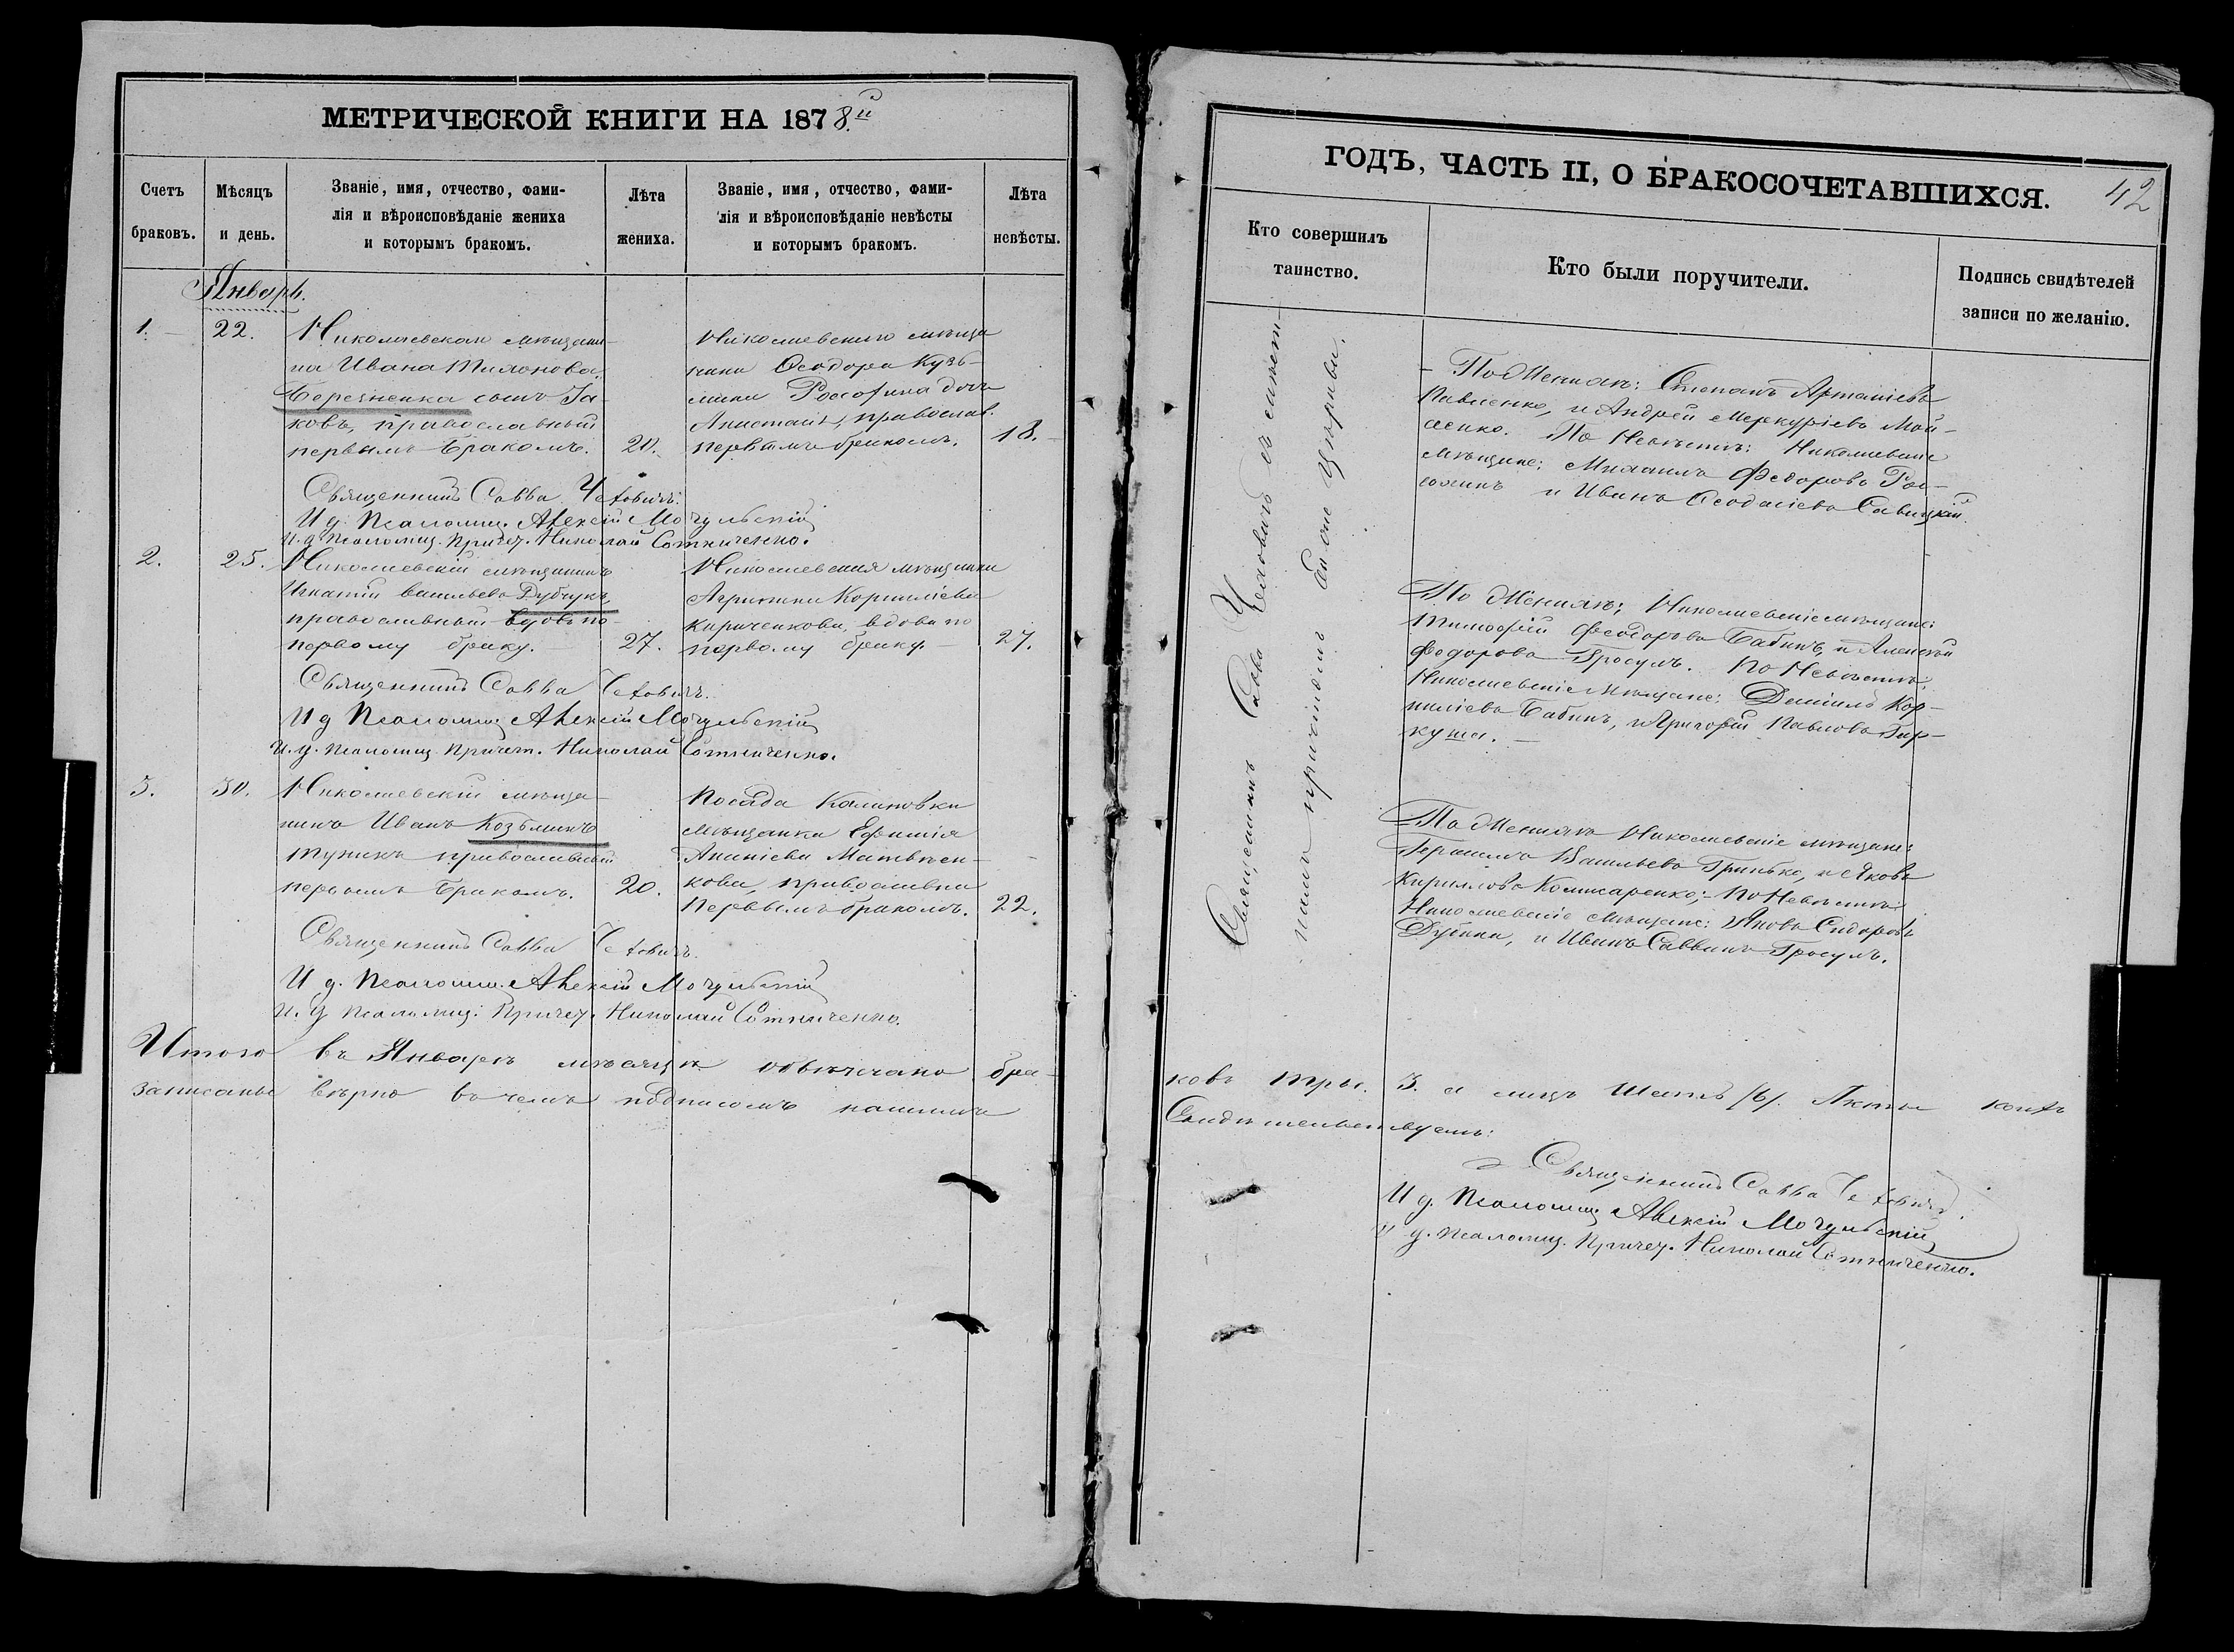 МЕТРИЧЕСКОЙ КНИГИ НА 1878й
Счетъ
браковъ.
Мѣсяцъ
и день.
Званіе, имя, отчество, фами-
лія и вѣроисповѣданіе жениха
и которымъ бракомъ.
Лѣта
жениха.
Званіе, имя, отчество, фами-
лія и вѣроисповѣданіе невѣсты
и которымъ бракомъ.
Лѣта
невѣсты.
Январь.
1.
22.
мѣщани-
на Ивана
сынъ Іа-
ковъ, православный
первымъ бракомъ.
20.
мѣща
нина Ѳеодора Кузь-
мина дочь
православ.
первымъ бракомъ.
18.
Священникъ Савва Чехович
И д. Псаломщ. Алексій Мочульскій
И. д. Псаломщ. Причет. Николай Сотниченко.
2.
25.
Николаевскій мѣщанинъ
Игнатій Васильевъ
православный вдовъ по
первому браку.
27.
Николаевская мѣщанка
Корниліева
Кириченкова, вдова по
первому браку.
27.
Священникъ Савва Чехович.
И д Псаломщ. Алексій Мочульскій
И. д. Псаломщ. Причет. Николай Сотниченко.
3.
30.
Николаевскій мѣща-
нинъ Иванъ Козьминъ
православный
первымъ бракомъ.
20.
Посада Калиновки
мѣщанка Ефимія
Ананіева Матвѣен-
кова, православна
первымъ бракомъ.
22.
Священникъ Савва Чехович.
И д. Псаломщ. Алексій Мочульскій
И. д Псаломщ. Причет. Николай Сотниченко.
Итого въ Январѣ мѣсяцѣ обвѣнчано бра-
записаны вѣрно въ чемъ подписомъ нашимъ
ГОДЪ, ЧАСТЬ II, О БРАКОСОЧЕТАВШИХСЯ.
42
Кто совершилъ
таинство.
Кто были поручители.
Подпись свидѣтелей
записи по желанію.
Священникъ Савва Чеховичъ съ
причтомъ
По Женихѣ: Степанъ
Павленко, и Андрей Меркуріевъ Мой-
сенко. По Невѣстѣ: Николаевскіе
мѣщане: Михаилъ Федоровъ
и Иванъ Савицкій.
По Женихѣ: Николаевскіе мѣщане:
Тимофій Феодоровъ Бабинъ, и Алексѣй
Федоровъ Гросулъ. По Невѣстѣ:
Николаевскіе мѣщане: Даніилъ Кор-
ниліевъ Бабинъ, и Григорій Павловъ Гар-
куша.
По Женихѣ Николаевскіе мѣщане:
Васильевъ Гринько, и Яковъ
Кирилловъ Комисаренко; По Невѣстѣ:
Николаевскіе мѣщане: Яковъ Сидоровъ
и Иванъ Саввинъ Гросулъ.
ковъ три. 3. а лицъ Шесть /6/. Акты коихъ
Свидѣтельствуемъ:
Священникъ Савва Чехович.
И д. Псаломщ. Алексій Мочульскій
И д. Псаломщ. Причет. Николай Сотниченко.